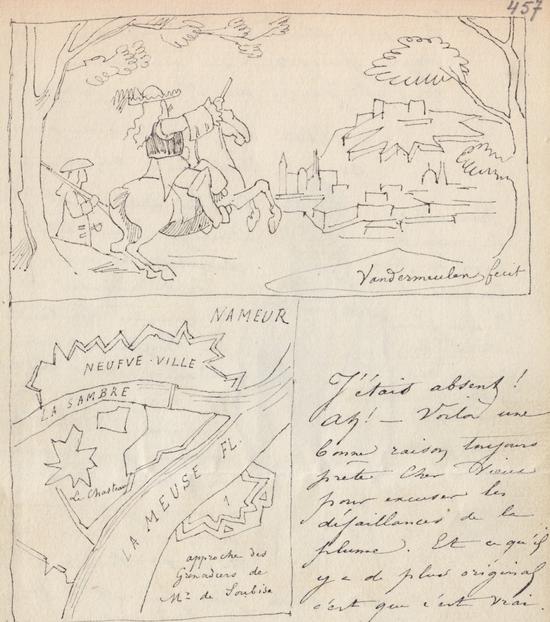 457
Vandermeulen fecit
NAMEUR
NEUFVE-VILLE
LA SAMBRE
Le Chasteau
LA MEUSE FL.
1
approche des
Grenadiers de
Mr de Soubise
J'étais absent!
Ah! — Voilà une
bonne raison toujours
prête Cher Vieux
pour excuser les
défaillances de la
plume. Et ce qu'il
y a de plus original
c'est que c'est vrai.